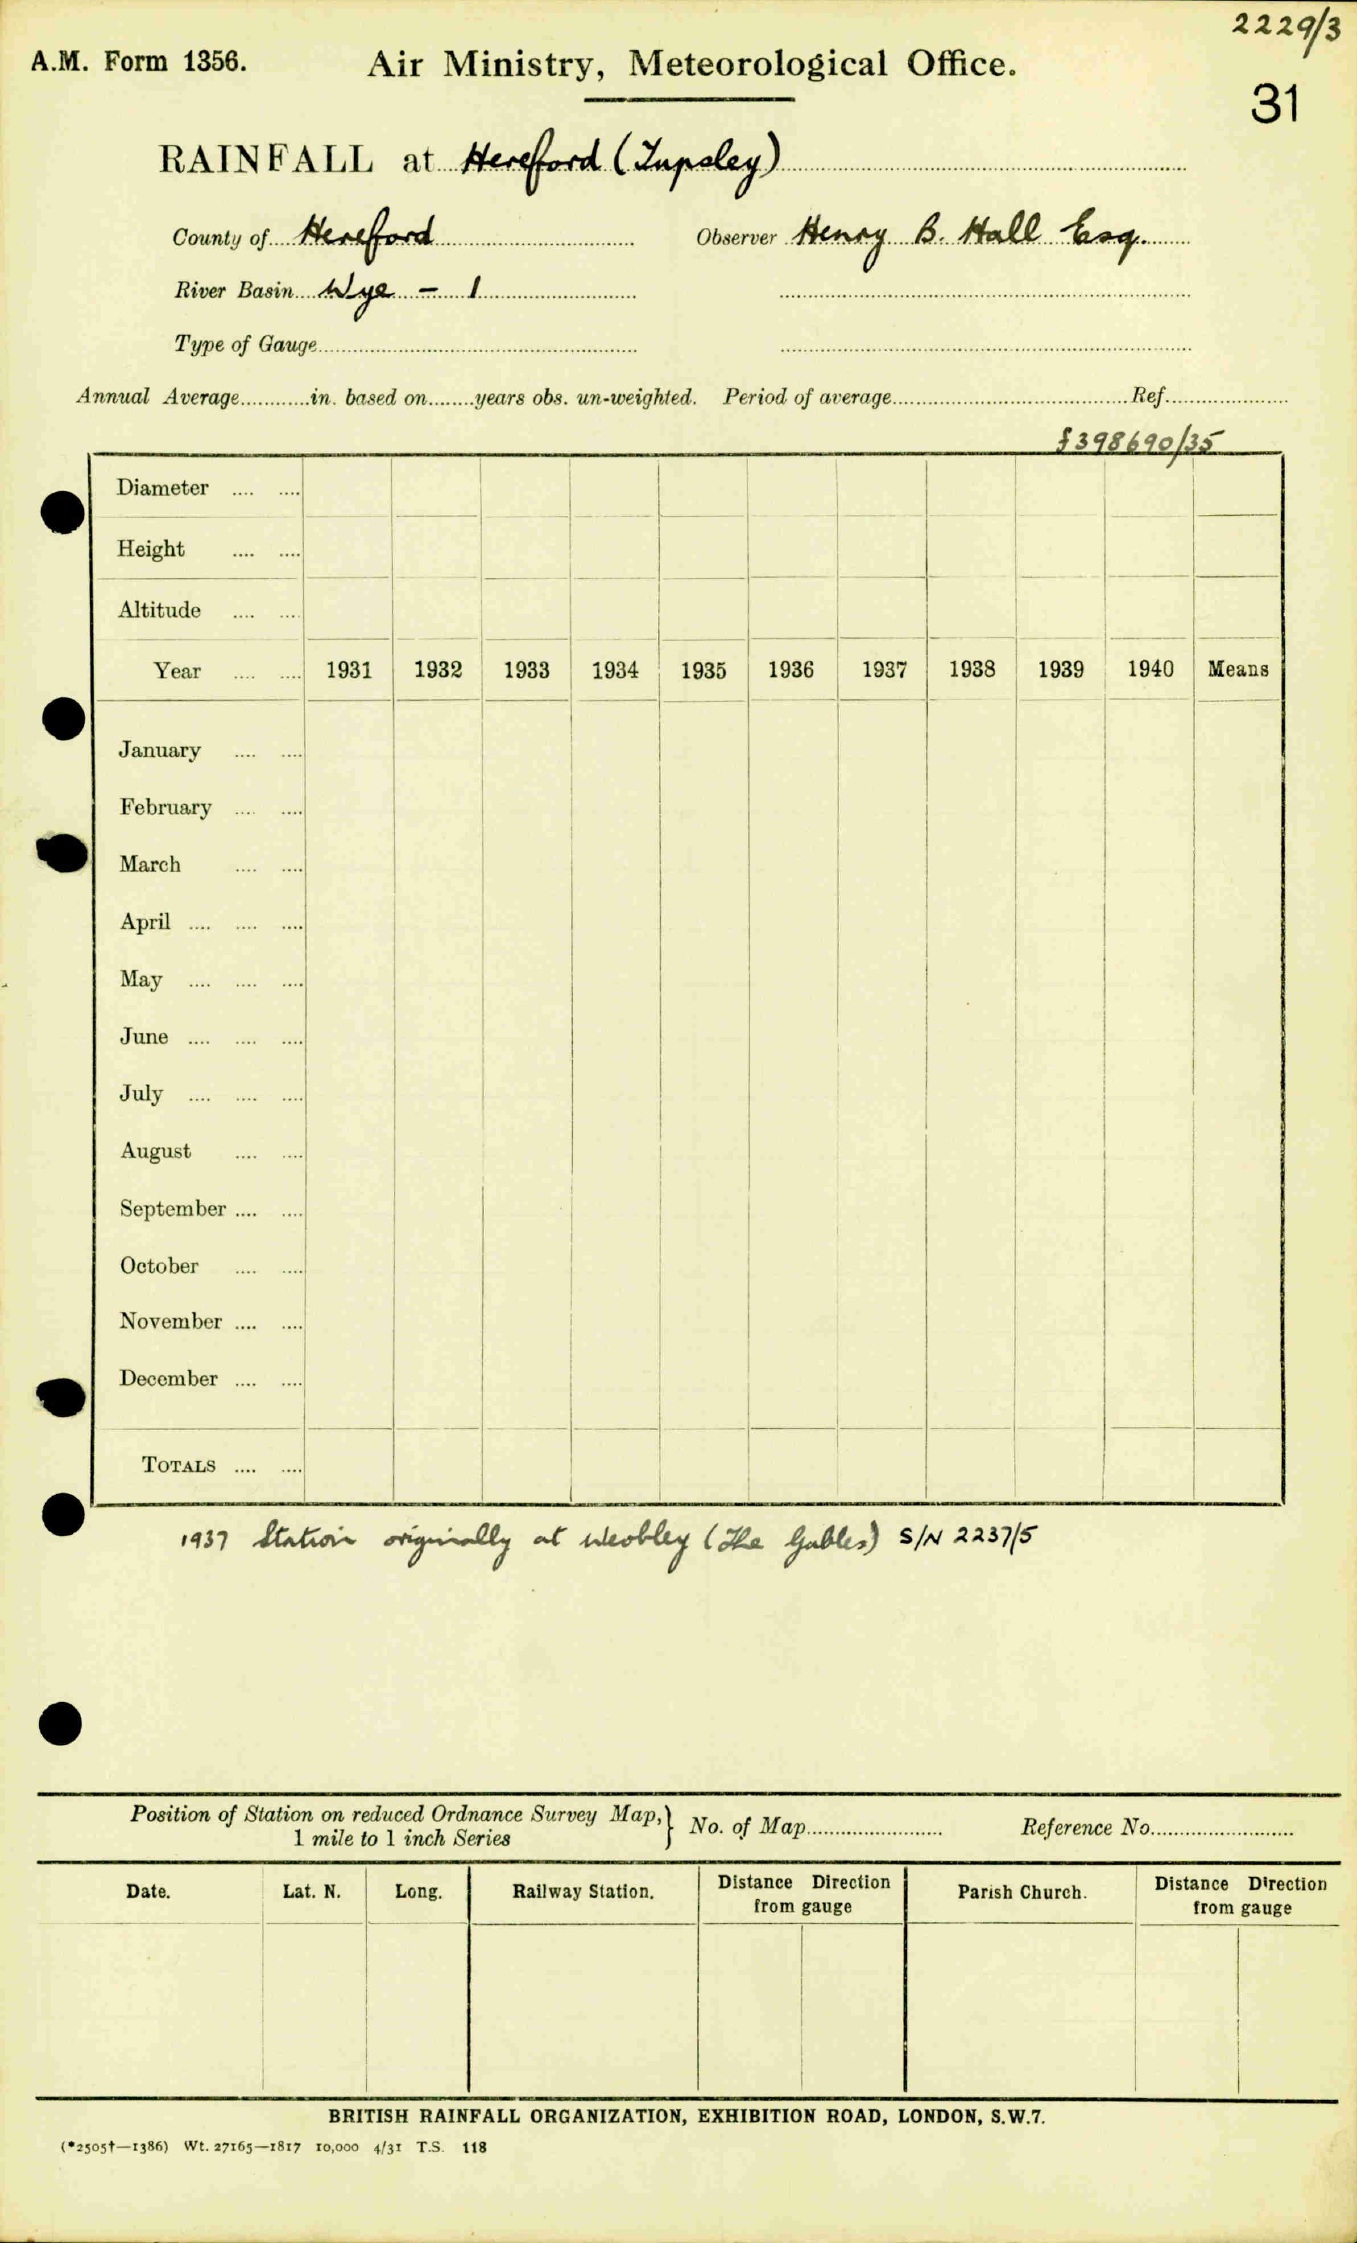 2229/3
A.M. Form 1356. Air Ministry, Meteorological Office.
31
RAINFALL at Hereford (Tupsley)
County of Hereford Observer Henry B. Hall Esq.
River Basin Wye - 1
Type of Gauge
Annual Average in. based on years obs. un-weighted. Period of average Ref.
398690/35
Diameter
Height
Altitude
Year 1931 1932 1933 1934 1935 1936 1937 1938 1939 1940 Means
January
February
March
April
May
June
July
August
September
October
November
December
TOTALS
1937 Station originally at Weobley (The Gables) S/N 2237/5
Position of Station on reduced Ordnance Survey Map,} No. of Map Reference No.
1 mile to 1 inch Series
Date. Lat. N. Long. Railway Station. Distance Direction from gauge Parish Church. Distance Direction from gauge
BRITISH RAINFALL ORGANIZATION, EXHIBITION ROAD, LONDON, S.W.7.
(*2505†—1386) Wt. 27165—1817 10,000 4/31 T.S. 118